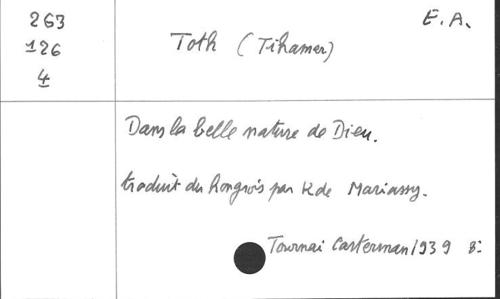 263
126
4
E. A.
Toth (Tihamer)
Dans la belle nature de Dieu.
traduit du hongrois par K de Mariassy.
Tournai Casterman 1939 8: